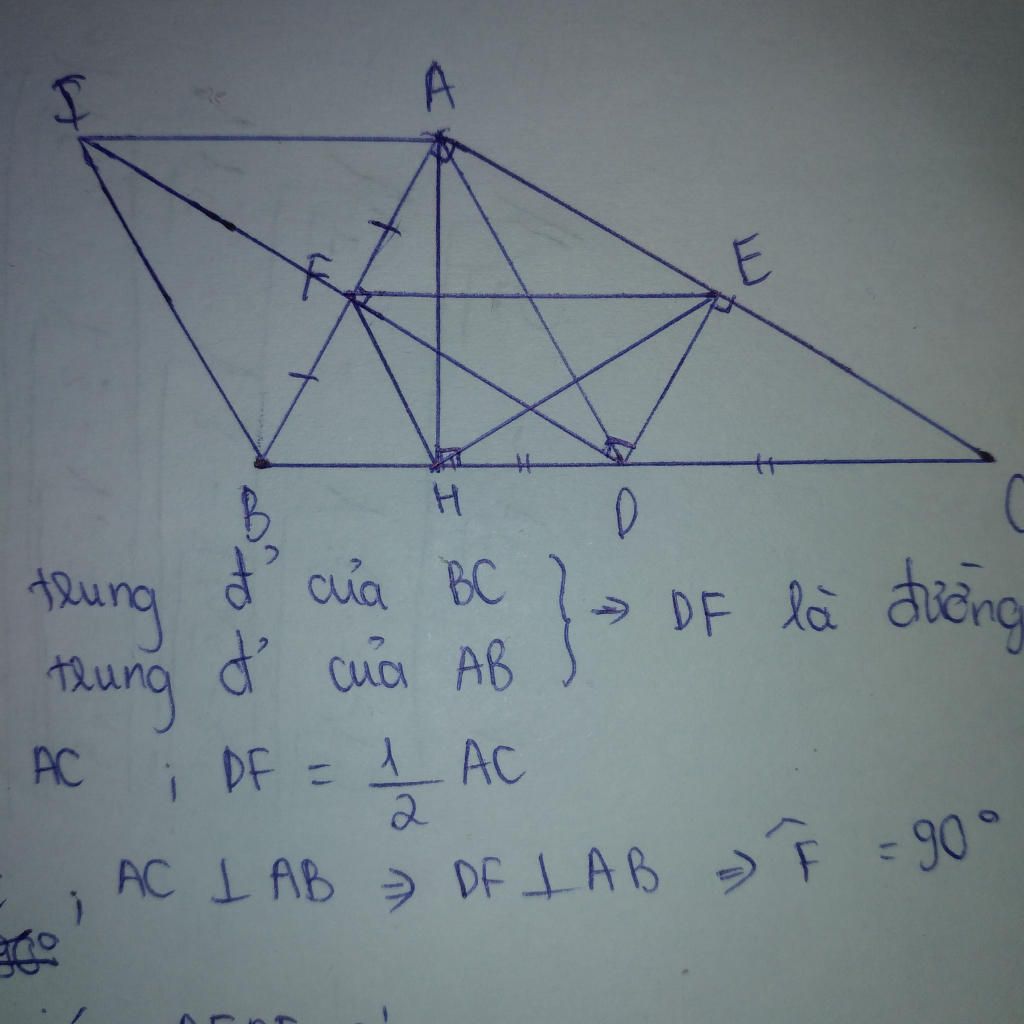 I A
F E
B H D C
trung đ' của BC } => DF là đường
trung đ' của AB
AC ; DF = 1/2 AC
; AC ⊥ AB => DF ⊥ AB => F̂ = 90°
90°